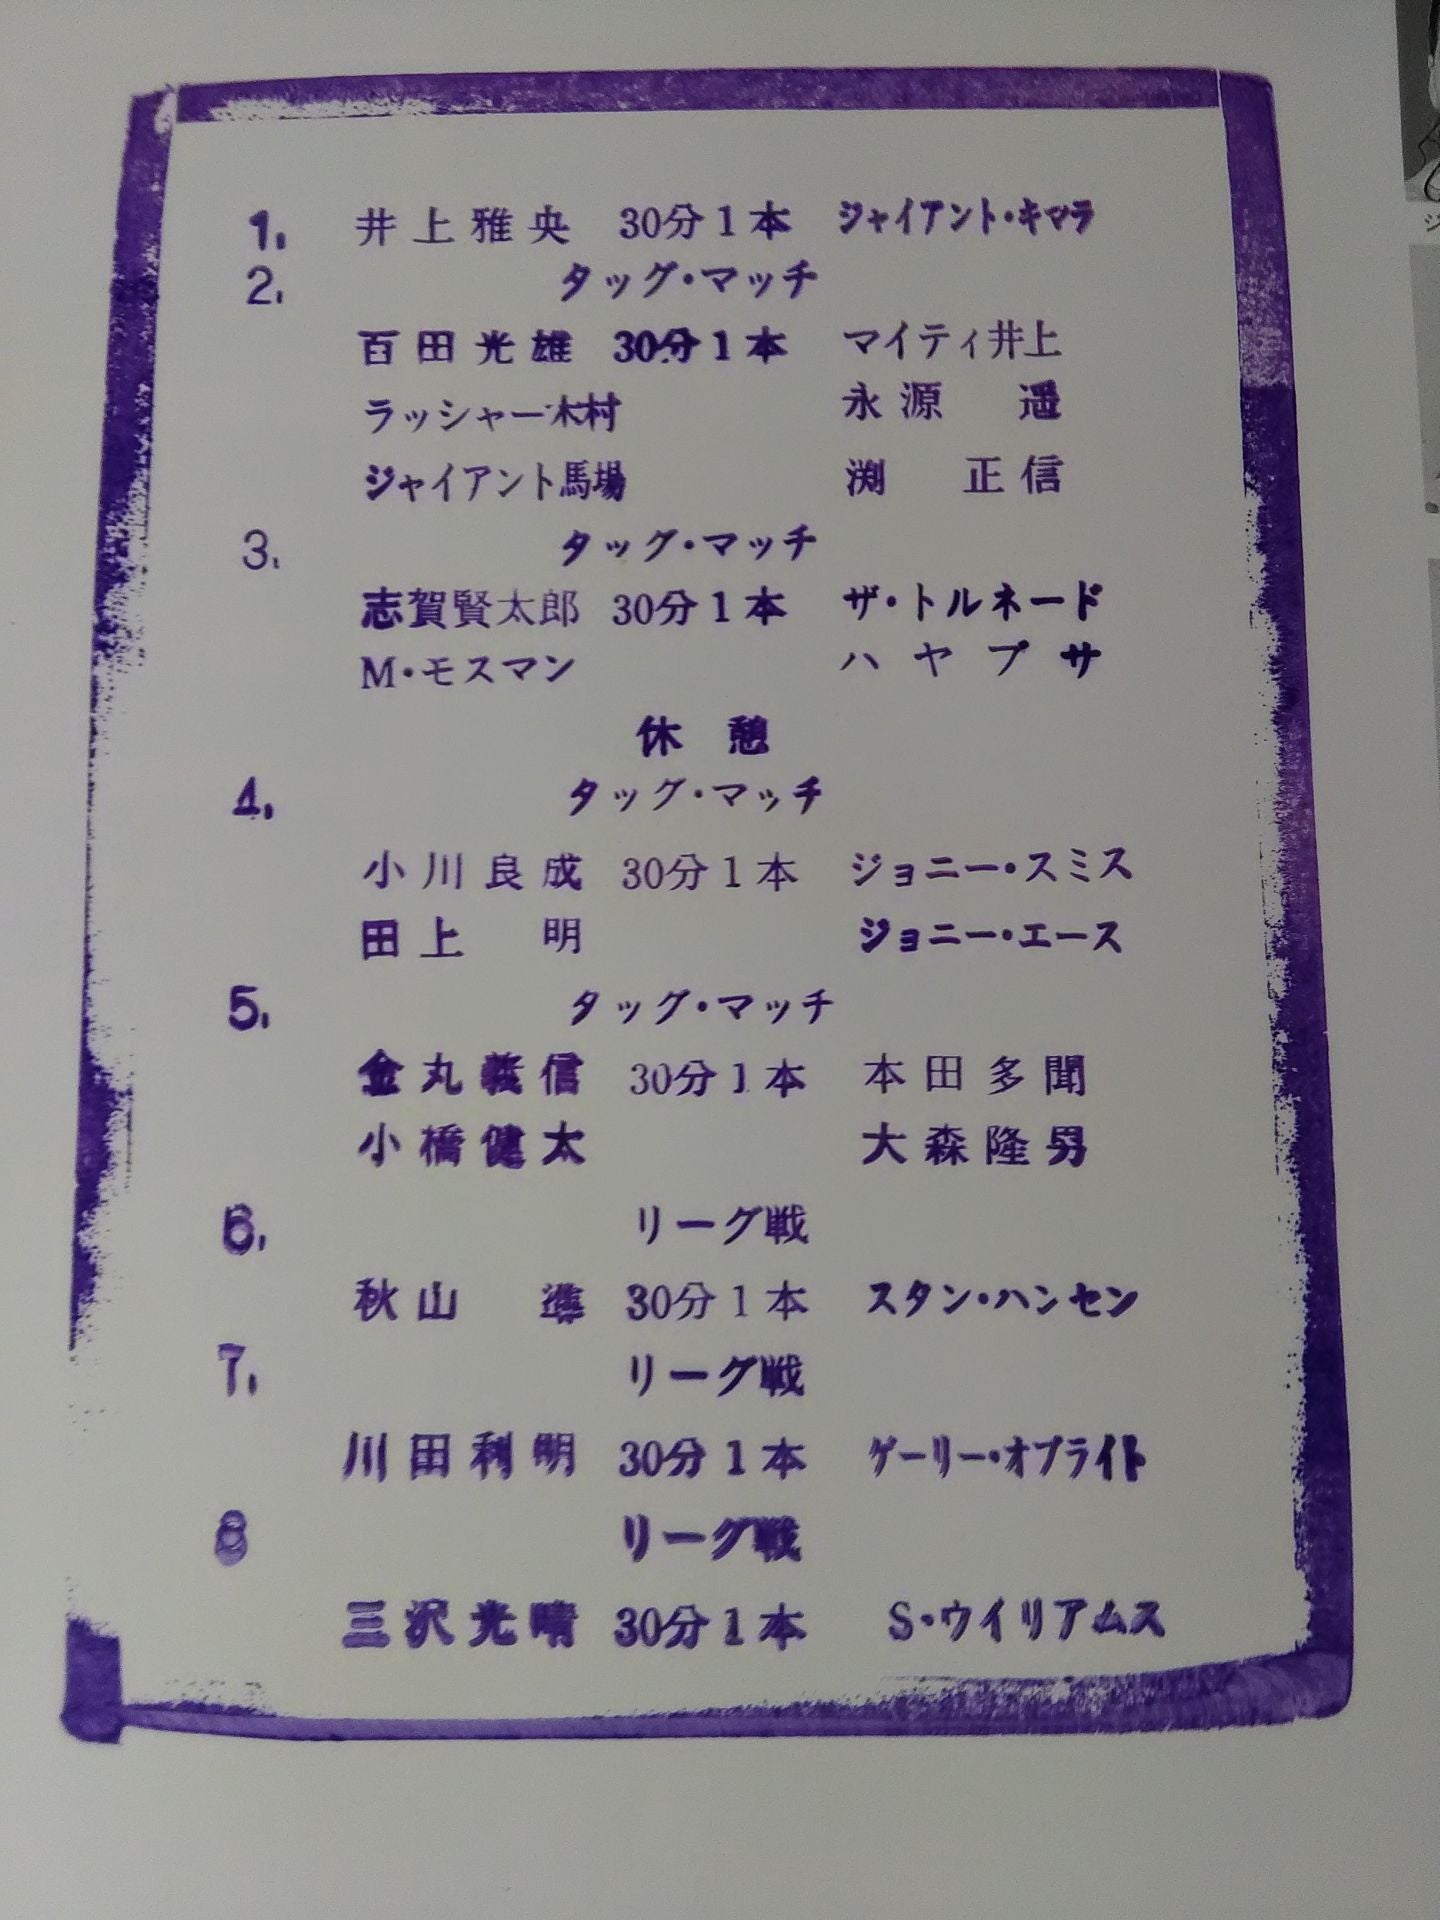 1. 井上雅央 30分1本 ジャイアント・キマラ
2. タッグ・マッチ
百田光雄 30分1本 マイティ井上
ラッシャー木村 永源 遥
ジャイアント馬場 渕 正信
3. タッグ・マッチ
志賀賢太郎 30分1本 ザ・トルネード
M・モスマン ハヤブサ
休憩
4. タッグ・マッチ
小川良成 30分1本 ジョニー・スミス
田上 明 ジョニー・エース
5. タッグ・マッチ
金丸義信 30分1本 本田多聞
小橋健太 大森隆男
6. リーグ戦
秋山 準 30分1本 スタン・ハンセン
7. リーグ戦
川田利明 30分1本 ゲーリー・オブライト
8 リーグ戦
三沢光晴 30分1本 S・ウイリアムス